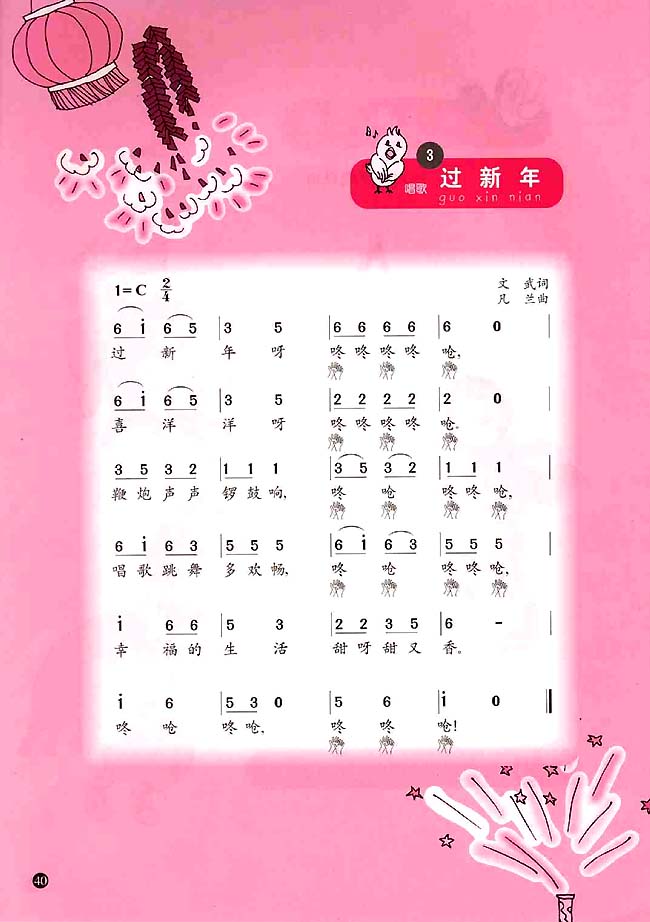 3
唱歌 过新年
guo xin nian
1=C 2/4
文 武词
凡 兰曲
6 i 6 5 | 3 5 | 6 6 6 6 | 6 0 |
过 新 年 呀 咚咚咚咚 呛,
6 i 6 5 | 3 5 | 2 2 2 2 | 2 0 |
喜 洋 洋 呀 咚咚咚咚 呛。
3 5 3 2 | 1 1 1 | 3 5 3 2 | 1 1 1 |
鞭炮声声 锣鼓响, 咚 呛 咚咚呛,
6 i 6 3 | 5 5 5 | 6 i 6 3 | 5 5 5 |
唱歌跳舞 多欢畅, 咚 呛 咚咚呛,
i 6 6 | 5 3 | 2 2 3 5 | 6 - |
幸 福的 生 活 甜呀甜又 香。
i 6 | 5 3 0 | 5 6 | i 0 ‖
咚 呛 咚呛, 咚 咚 呛!
40